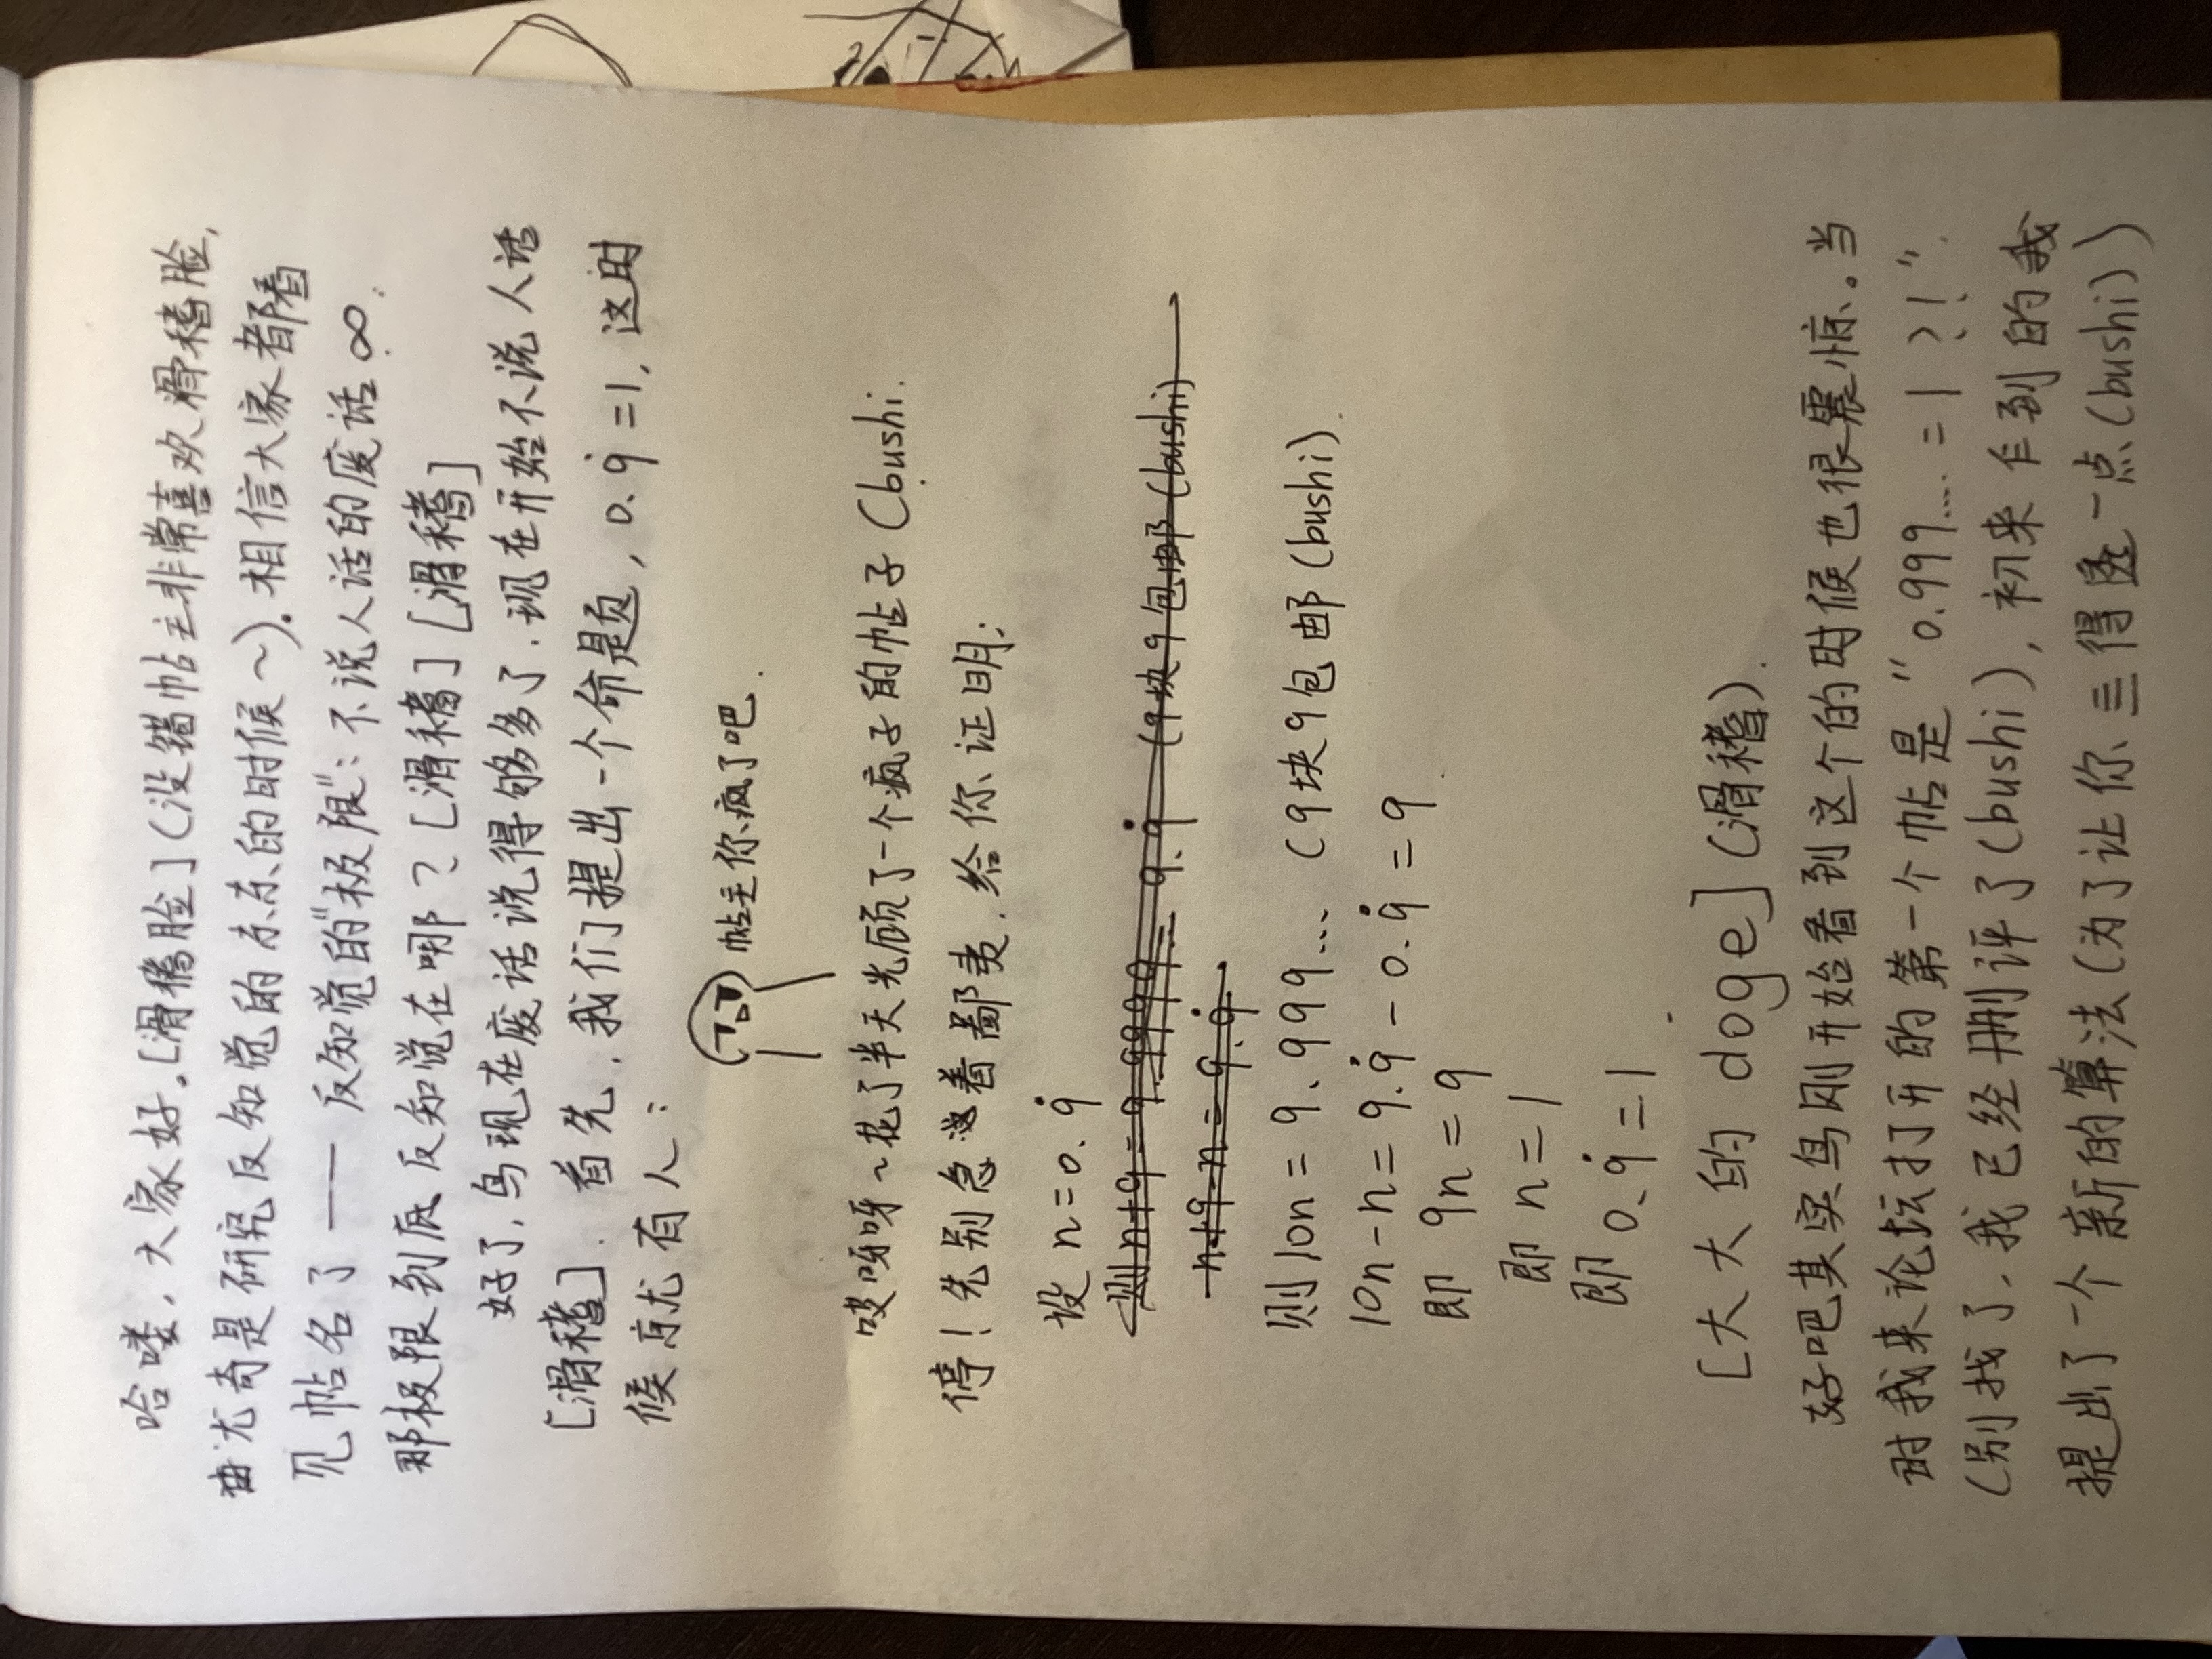 哈喽，大家好。[滑稽脸](没错帖主非常喜欢滑稽脸,
尤奇是研究反知觉的东东的时候～).相信大家都看
见帖名了——反知觉的"极限":不说人话的废话∞.
那极限到底反知觉在哪？[滑稽][滑稽]
好了,鸟现在废话说得够多了.现在开始不说人话
[滑稽].首先,我们提出一个命题,0.9̇=1,这时
候就有人:
帖主你疯了吧.
哎呀呀～花了半天光顾了一个疯子的帖子(bushi.
停!先别急着鄙夷.给你证明:
设n=0.9̇
则n+9=9.9999...=9.9̇(9块9包邮(bushi)
n+9-n=9.9̇
则10n=9.999...(9块9包邮(bushi).
10n-n=9.9̇-0.9̇=9
即 9n=9
即 n=1
即 0.9̇=1.
[大大的 doge](滑稽).
好吧其实鸟刚开始看到这个的时候也很震惊.当
时我来论坛打开的第一个帖是"0.999....=1?!".
(别找了,我已经删评了(bushi),初来乍到的我
提出了一个新的算法(为了让你三得透一点(bushi))